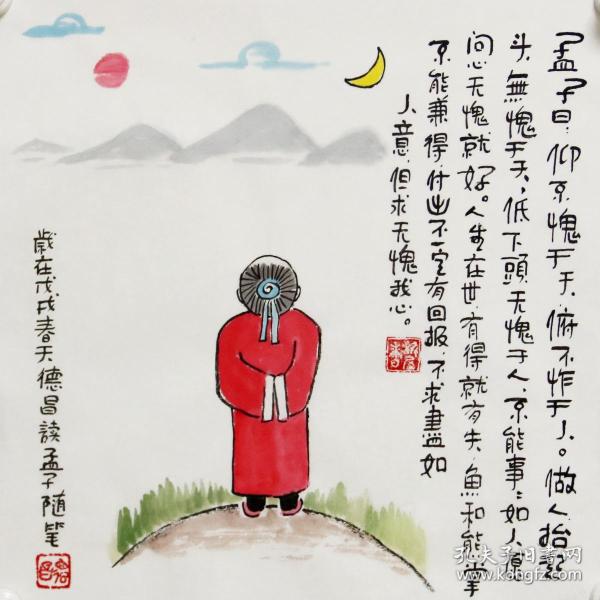 孟子曰:仰不愧于天,俯不怍于人。做人抬起
头,無愧于天,低下頭,无愧于人,不能事事如人愿
问心无愧就好。人生在世,有得就有失,魚和熊掌
不能兼得,付出不一定有回报,不求盡如
人意,但求无愧我心。
歲在戊戌春天德昌读孟子随笔
孔夫子旧书网
www.kongfz.com